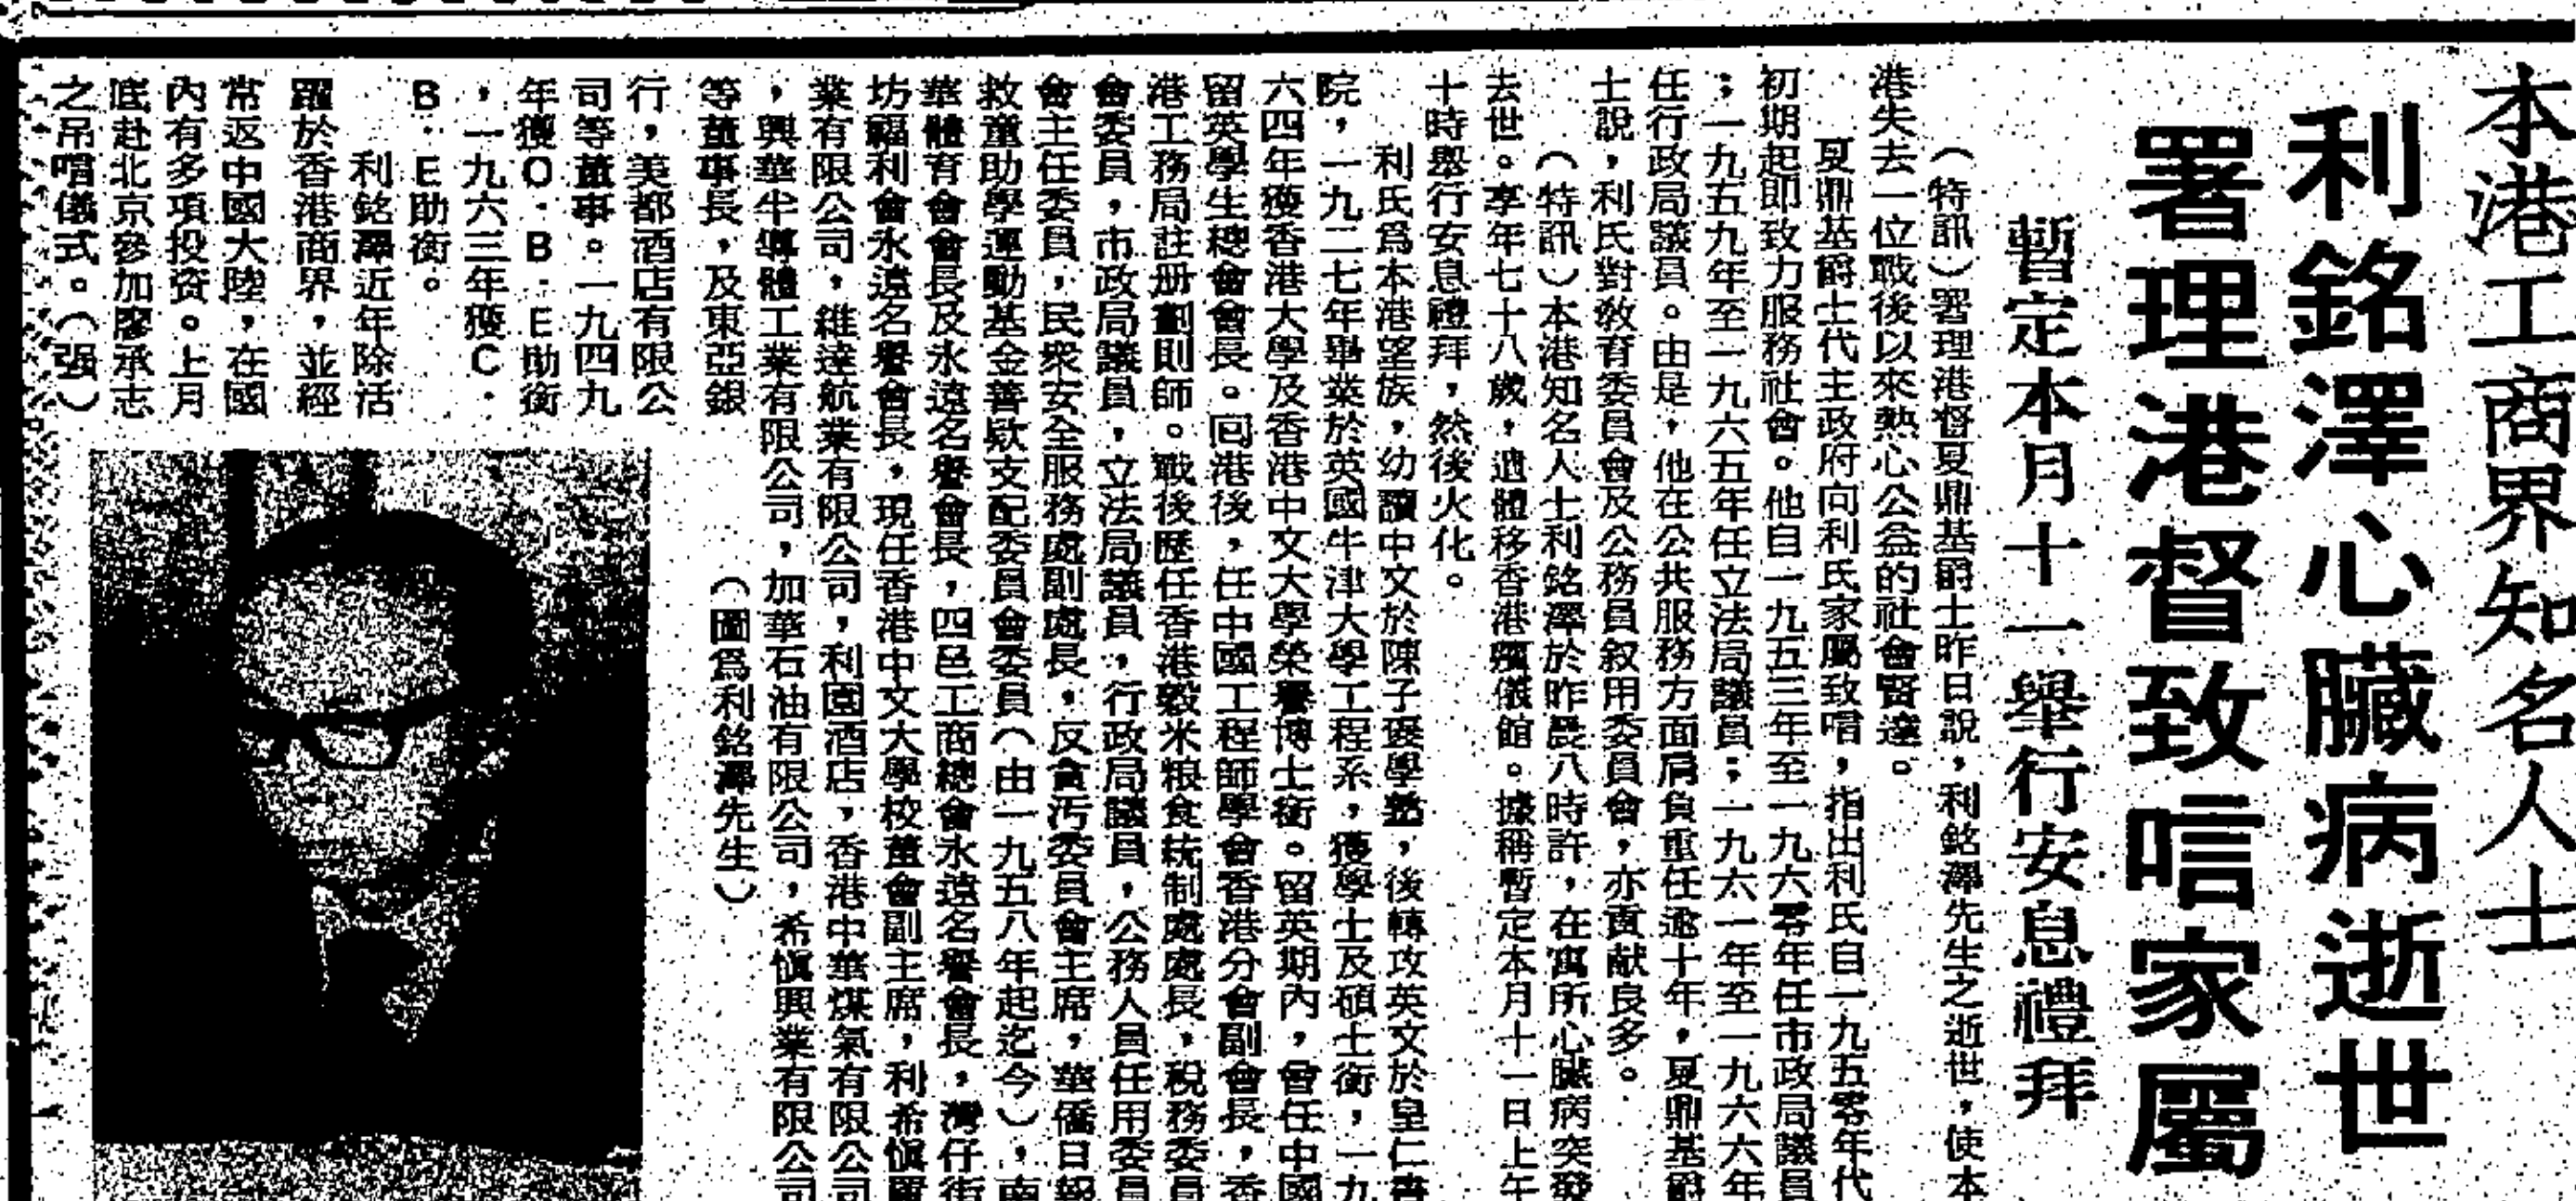 本港工商界知名人士
利銘澤心臟病逝世
署理港督致唁家屬
暫定本月十一舉行安息禮拜
（特訊）署理港督夏鼎基爵士昨日說，利銘澤先生之逝世，使本
港失去一位戰後以來熱心公益的社會賢達。
夏鼎基爵士代主政府向利氏家屬致唁，指出利氏自一九五零年代
初期起即致力服務社會。他自一九五三年至一九六零年任市政局議員
；一九五九年至一九六五年任立法局議員；一九六一年至一九六六年
任行政局議員。由是，他在公共服務方面肩負重任逾十年，夏鼎基爵
士說，利氏對敎育委員會及公務員敘用委員會，亦貢献良多。
（特訊）本港知名人士利銘澤於昨晨八時許，在寓所心臟病突發
去世。享年七十八歲，遺體移香港殯儀館。據稱暫定本月十一日上午
十時舉行安息禮拜，然後火化。
利氏爲本港望族，幼讀中文於陳子褒學塾，後轉攻英文於皇仁書
院，一九二七年畢業於英國牛津大學工程系，獲學士及碩士銜，一九
六四年獲香港大學及香港中文大學榮譽博士銜。留英期內，曾任中國
留英學生總會會長。囘港後，任中國工程師學會香港分會副會長，香
港工務局註册劃則師。戰後歷任香港穀米粮食統制處處長，稅務委員
會委員，市政局議員，立法局議員，行政局議員，公務人員任用委員
會主任委員，民衆安全服務處副處長，反貪污委員會主席，華僑日報
救童助學運動基金善欵支配委員會委員（由一九五八年起迄今），南
華體育會會長及永遠名譽會長，四邑工商總會永遠名譽會長，灣仔街
坊福利會永遠名譽會長，現任香港中文大學校董會副主席，利希愼置
業有限公司，維達航業有限公司，利園酒店，香港中華煤氣有限公司
，興華半導體工業有限公司，加華石油有限公司，希愼興業有限公司
等董事長，及東亞銀
行，美都酒店有限公
司等董事。一九四九
年獲O．B．E助銜
，一九六三年獲C．
B．E助銜。
利銘澤近年除活
躍於香港商界，並經
常返中國大陸，在國
內有多項投資。上月
底赴北京參加廖承志
之吊唁儀式。（强）
（圖爲利銘澤先生）